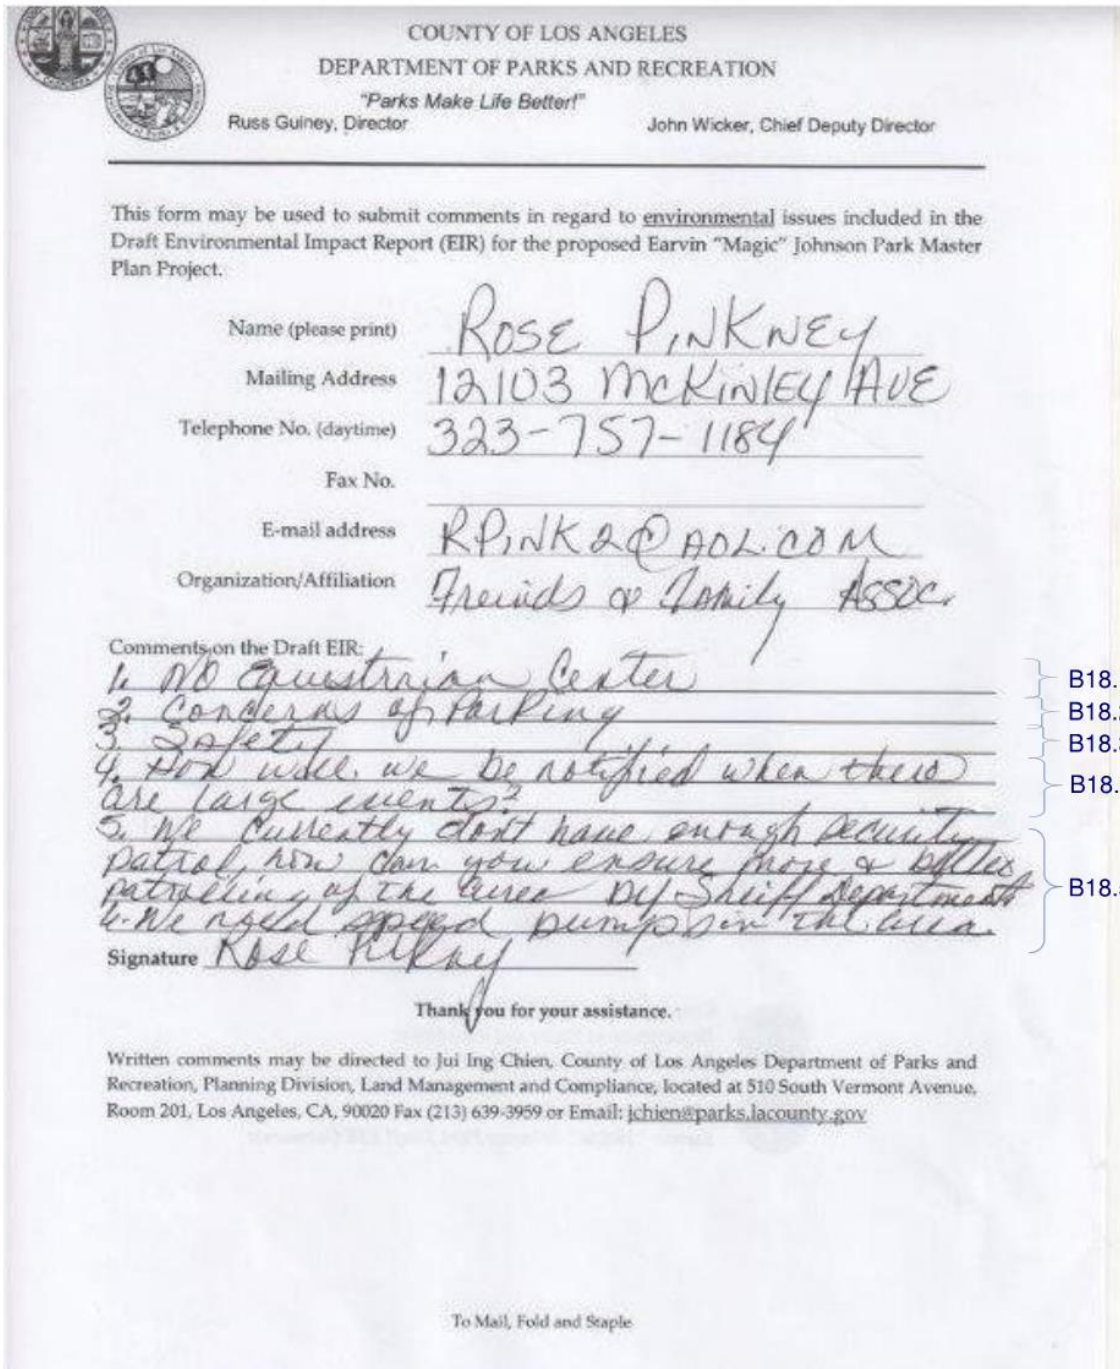 COUNTY OF LOS ANGELES
DEPARTMENT OF PARKS AND RECREATION
"Parks Make Life Better!"
Russ Guiney, Director John Wicker, Chief Deputy Director
This form may be used to submit comments in regard to environmental issues included in the
Draft Environmental Impact Report (EIR) for the proposed Earvin "Magic" Johnson Park Master
Plan Project.
Name (please print) ROSE PINKNEY
Mailing Address 12103 McKINLEY AVE
Telephone No. (daytime) 323-757-1184
Fax No.
E-mail address RPINK2@AOL.COM
Organization/Affiliation Freinds & Family ASSOC.
Comments on the Draft EIR:
1. NO Equestraian Center B18.
2. Concerns of Parking B18.
3. Safety B18.
4. How will we be notified when there
are large events? B18.
5. We currently dont have enough security
patrol, how can you ensure more & better
patrolling of the area by Sheiff Department B18.
6. We need speed bumps in the area.
Signature Rose Pinkney
Thank you for your assistance.
Written comments may be directed to Jui Ing Chien, County of Los Angeles Department of Parks and
Recreation, Planning Division, Land Management and Compliance, located at 510 South Vermont Avenue,
Room 201, Los Angeles, CA, 90020 Fax (213) 639-3959 or Email: jchien@parks.lacounty.gov
To Mail, Fold and Staple